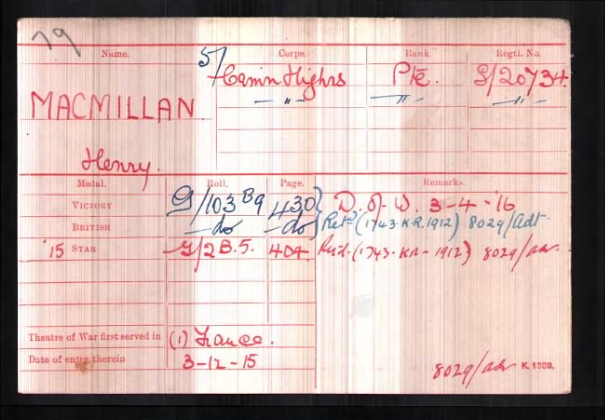 79
Name. Corps. Rank Regtl. No.
MACMILLAN 5/ Camn Highrs Pte. S/20734.
" " "
Henry.
Medal. Roll. Page. Remarks.
VICTORY G/103 B9 430 D. of W. 3-4-'16
BRITISH do do Retd (1743. K.R. 1912) 8029/Adt.
'15 STAR G/2 B.5. 404 Retd. (1743. KR - 1912) 8029/adt.
Theatre of War first served in (1) France.
Date of entry therein 3-12-15
8029/adt K. 1380.